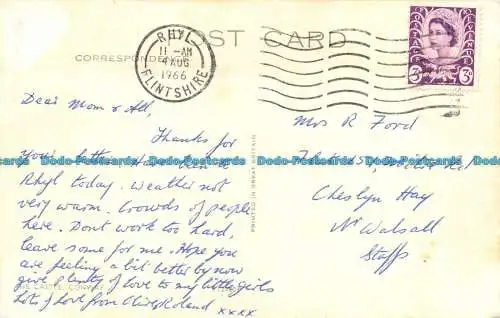 POST CARD
CORRESPONDENCE
RHYL
11 - AM
4 AUG
1966
FLINTSHIRE
3D 3D
Dear Mom & All,
Thanks for
your letter
Rhyl today. Weather not
very warm. Crowds of people
here. Dont work too hard,
leave some for me. Hope you
are feeling a bit better by now
give plenty of love to my little girls
Lots of Love from Olive & Roland
xxxx
Mrs R Ford
Cheslyn Hay
Nr Walsall
Staffs
PRINTED IN GREAT BRITAIN
THE CASTLE, CONWAY
Dodo-Postcards Dodo-Postcards Dodo-Postcards Dodo-Postcards Dodo-Postcards